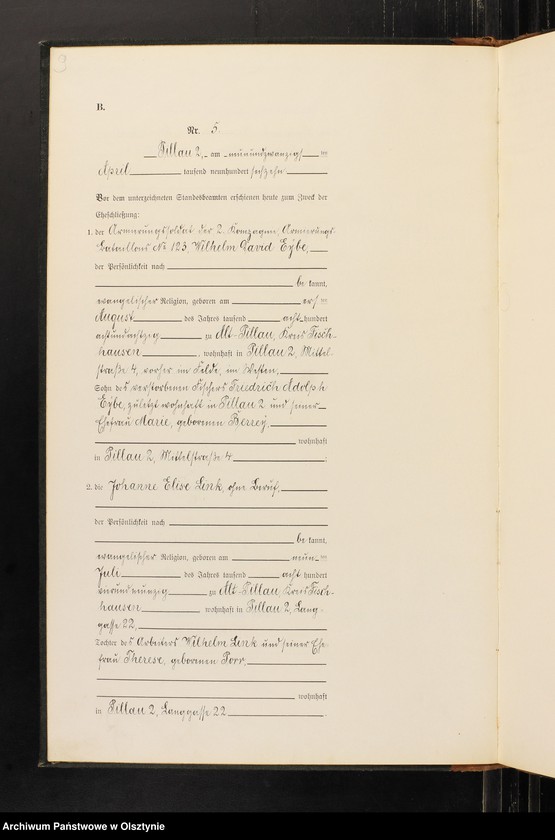 B.
Nr. 5.
Pillau 2, am neunundzwanzigsten
April tausend neunhundert sechzehn
Vor dem unterzeichneten Standesbeamten erschienen heute zum Zweck der
Eheschließung:
1. der Armierungssoldat der 2. Kompagnie, Armierungs-
Bataillons No 123, Wilhelm David Eybe,
der Persönlichkeit nach
be kannt,
evangelischer Religion, geboren am ersten
August des Jahres tausend acht hundert
achtundachtzig zu Alt-Pillau, Kreis Fisch-
hausen, wohnhaft in Pillau 2, Mittel-
straße 4, vorher im Felde, im Westen,
Sohn des verstorbenen Fischers Friedrich Adolph
Eybe, zuletzt wohnhaft in Pillau 2 und seiner
Ehefrau Marie, geborenen
wohnhaft
in Pillau 2, Mittelstraße 4.
2. die Johanne Elise Link, ohne Beruf,
der Persönlichkeit nach
be kannt,
evangelischer Religion, geboren am neunten
Juli des Jahres tausend acht hundert
vierundneunzig zu Alt-Pillau, Kreis Fisch-
hausen wohnhaft in Pillau 2, Lang-
gasse 22,
Tochter des Arbeiters Wilhelm Link und seiner Ehe-
frau Therese, geborenen Porr,
wohnhaft
in Pillau 2, Langgasse 22.
Archiwum Państwowe w Olsztynie